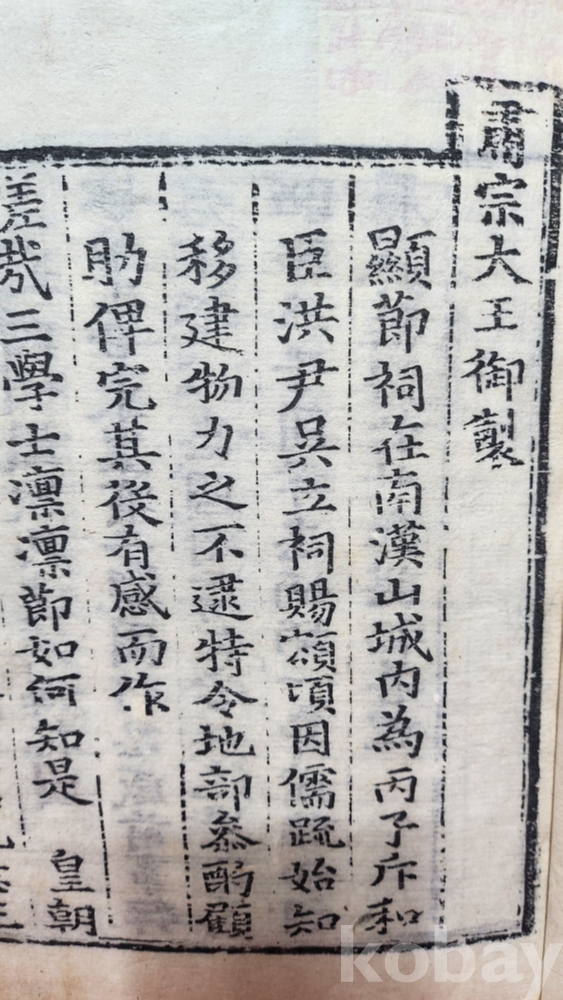 肅宗大王御製
顯節祠在南漢山城內為丙子斥和
臣洪尹吳立祠賜額頃因儒疏始知
移建物力之不逮特令地部叅酌顧
助俾完其後有感而作
嗟哉三學士凛凛節如何知是 皇朝
kobay